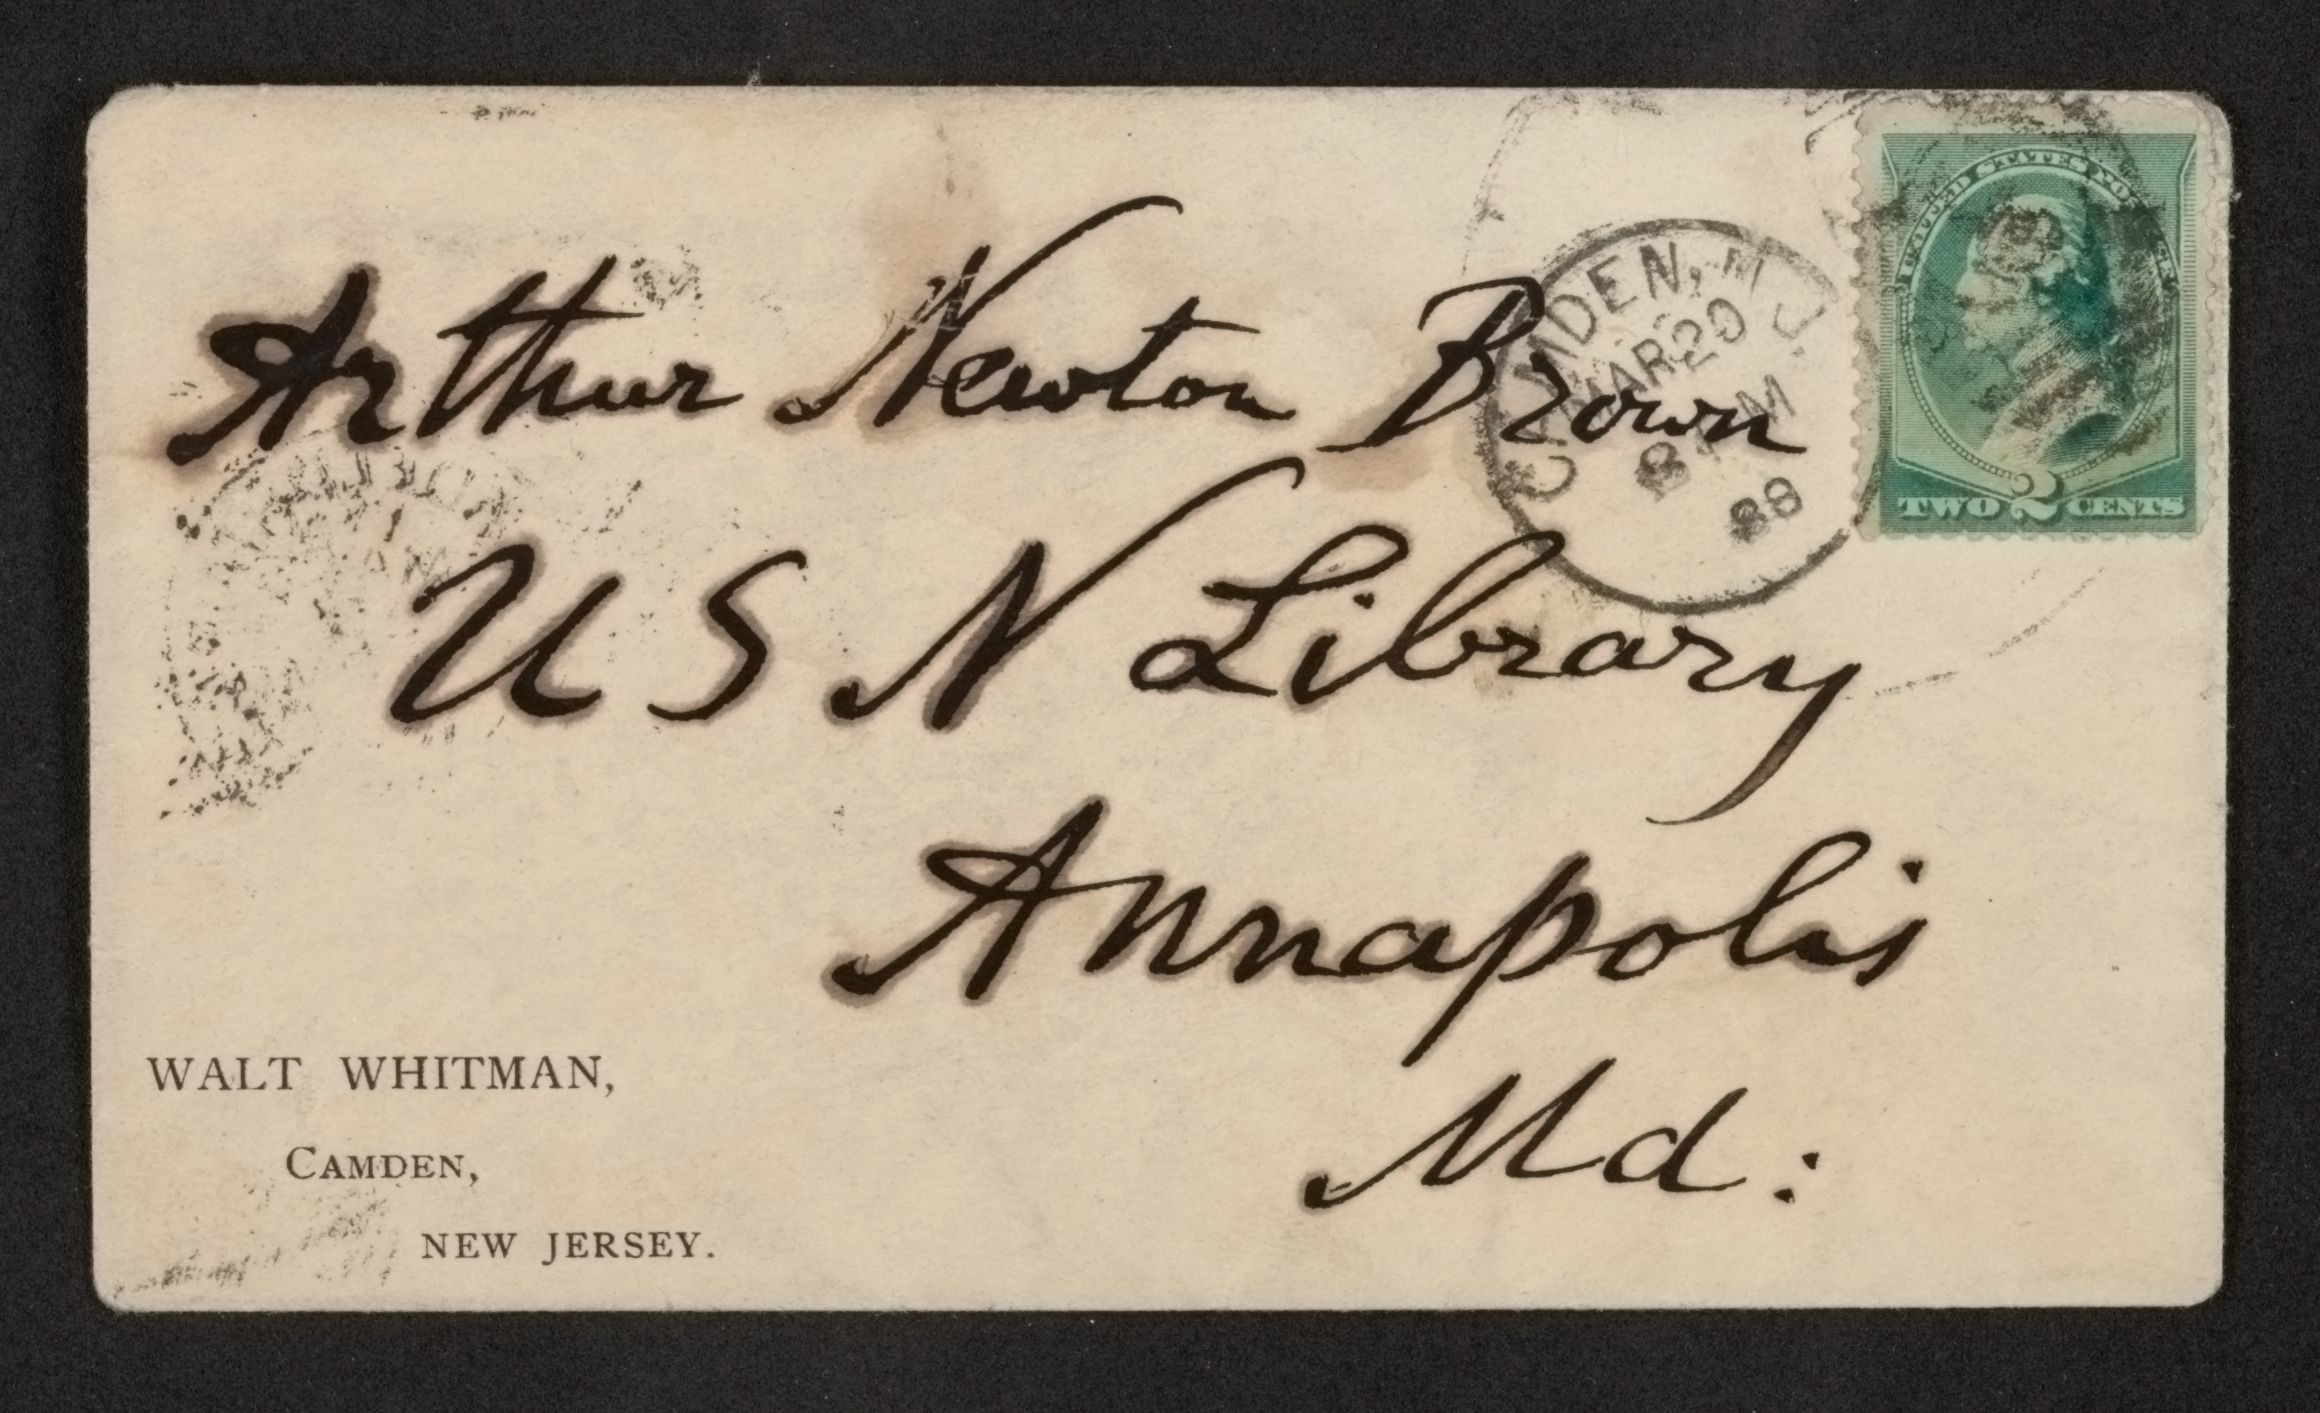 Arthur Newton Brown
U S N Library
Annapolis
Md:
WALT WHITMAN,
CAMDEN,
NEW JERSEY.
CAMDEN, N.J.
MAR 20
88
UNITED STATES
TWO 2 CENTS